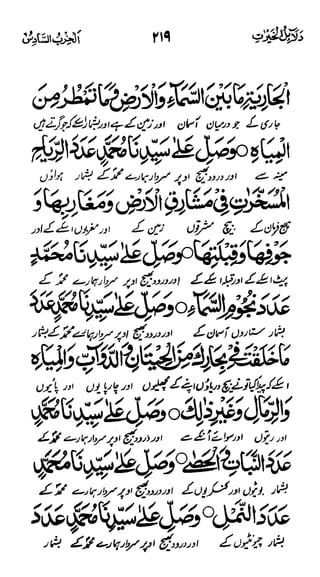 دلائل الخیرات ٢١٩ الحزب السادس
الْجَارِيَةِ مَا بَيْنَ السَّمَآءِ وَالْاَرْضِ وَمَا تَمْطُرُ مِنَ
جاری کے جو درمیان آسمان اور زمین کے ہے اور بشمار اسکے کہ جو گرتے ہیں
الْمِيَاهِ ○ وَصَلِّ عَلٰى سَيِّدِنَا مُحَمَّدٍ عَدَدَ الرِّيَاحِ
مینہ سے اور درود بھیج اوپر سردار ہمارے محمدؐ کے بشمار ہواؤں
الْمُسَخَّرَاتِ فِىْ مَشَارِقِ الْاَرْضِ وَمَغَارِبِهَا وَ
تابع فرمان کے بیچ مشرقوں زمین کے اور مغربوں اسکے کے اور
جَوْفِهَا وَقِبْلَتِهَا ○ وَصَلِّ عَلٰى سَيِّدِنَا مُحَمَّدٍ
پیٹ اسکے کے اور قبلہ اسکے کے اور درود بھیج اوپر سردار ہمارے محمدؐ کے
عَدَدَ نُجُوْمِ السَّمَآءِ ○ وَصَلِّ عَلٰى سَيِّدِنَا مُحَمَّدٍ عَدَدَ
بشمار ستاروں آسمان کے اور درود بھیج اوپر سردار ہمارے محمدؐ کے بشمار
مَا خَلَقْتَ فِىْ بِحَارِكَ مِنَ الْحِيْتَانِ وَالدَّوَآبِّ وَالْمِيَاهِ
اسکے کہ پیدا کیا تو نے بیچ دریاؤں اپنے کے مچھلیوں اور چارپایوں اور پانیوں
وَالرِّمَالِ وَغَيْرِ ذٰلِكَ ○ وَصَلِّ عَلٰى سَيِّدِنَا مُحَمَّدٍ
اور ریتوں اور سوائے اُنکے سے اور درود بھیج اوپر سردار ہمارے محمدؐ کے
عَدَدَ النَّبَاتِ وَالْحَصٰى ○ وَصَلِّ عَلٰى سَيِّدِنَا مُحَمَّدٍ
بشمار بوٹیوں اور کنکریوں کے اور درود بھیج اوپر سردار ہمارے محمدؐ کے
عَدَدَ النَّمْلِ ○ وَصَلِّ عَلٰى سَيِّدِنَا مُحَمَّدٍ عَدَدَ
بشمار چیونٹیوں کے اور درود بھیج اوپر سردار ہمارے محمدؐ کے بشمار